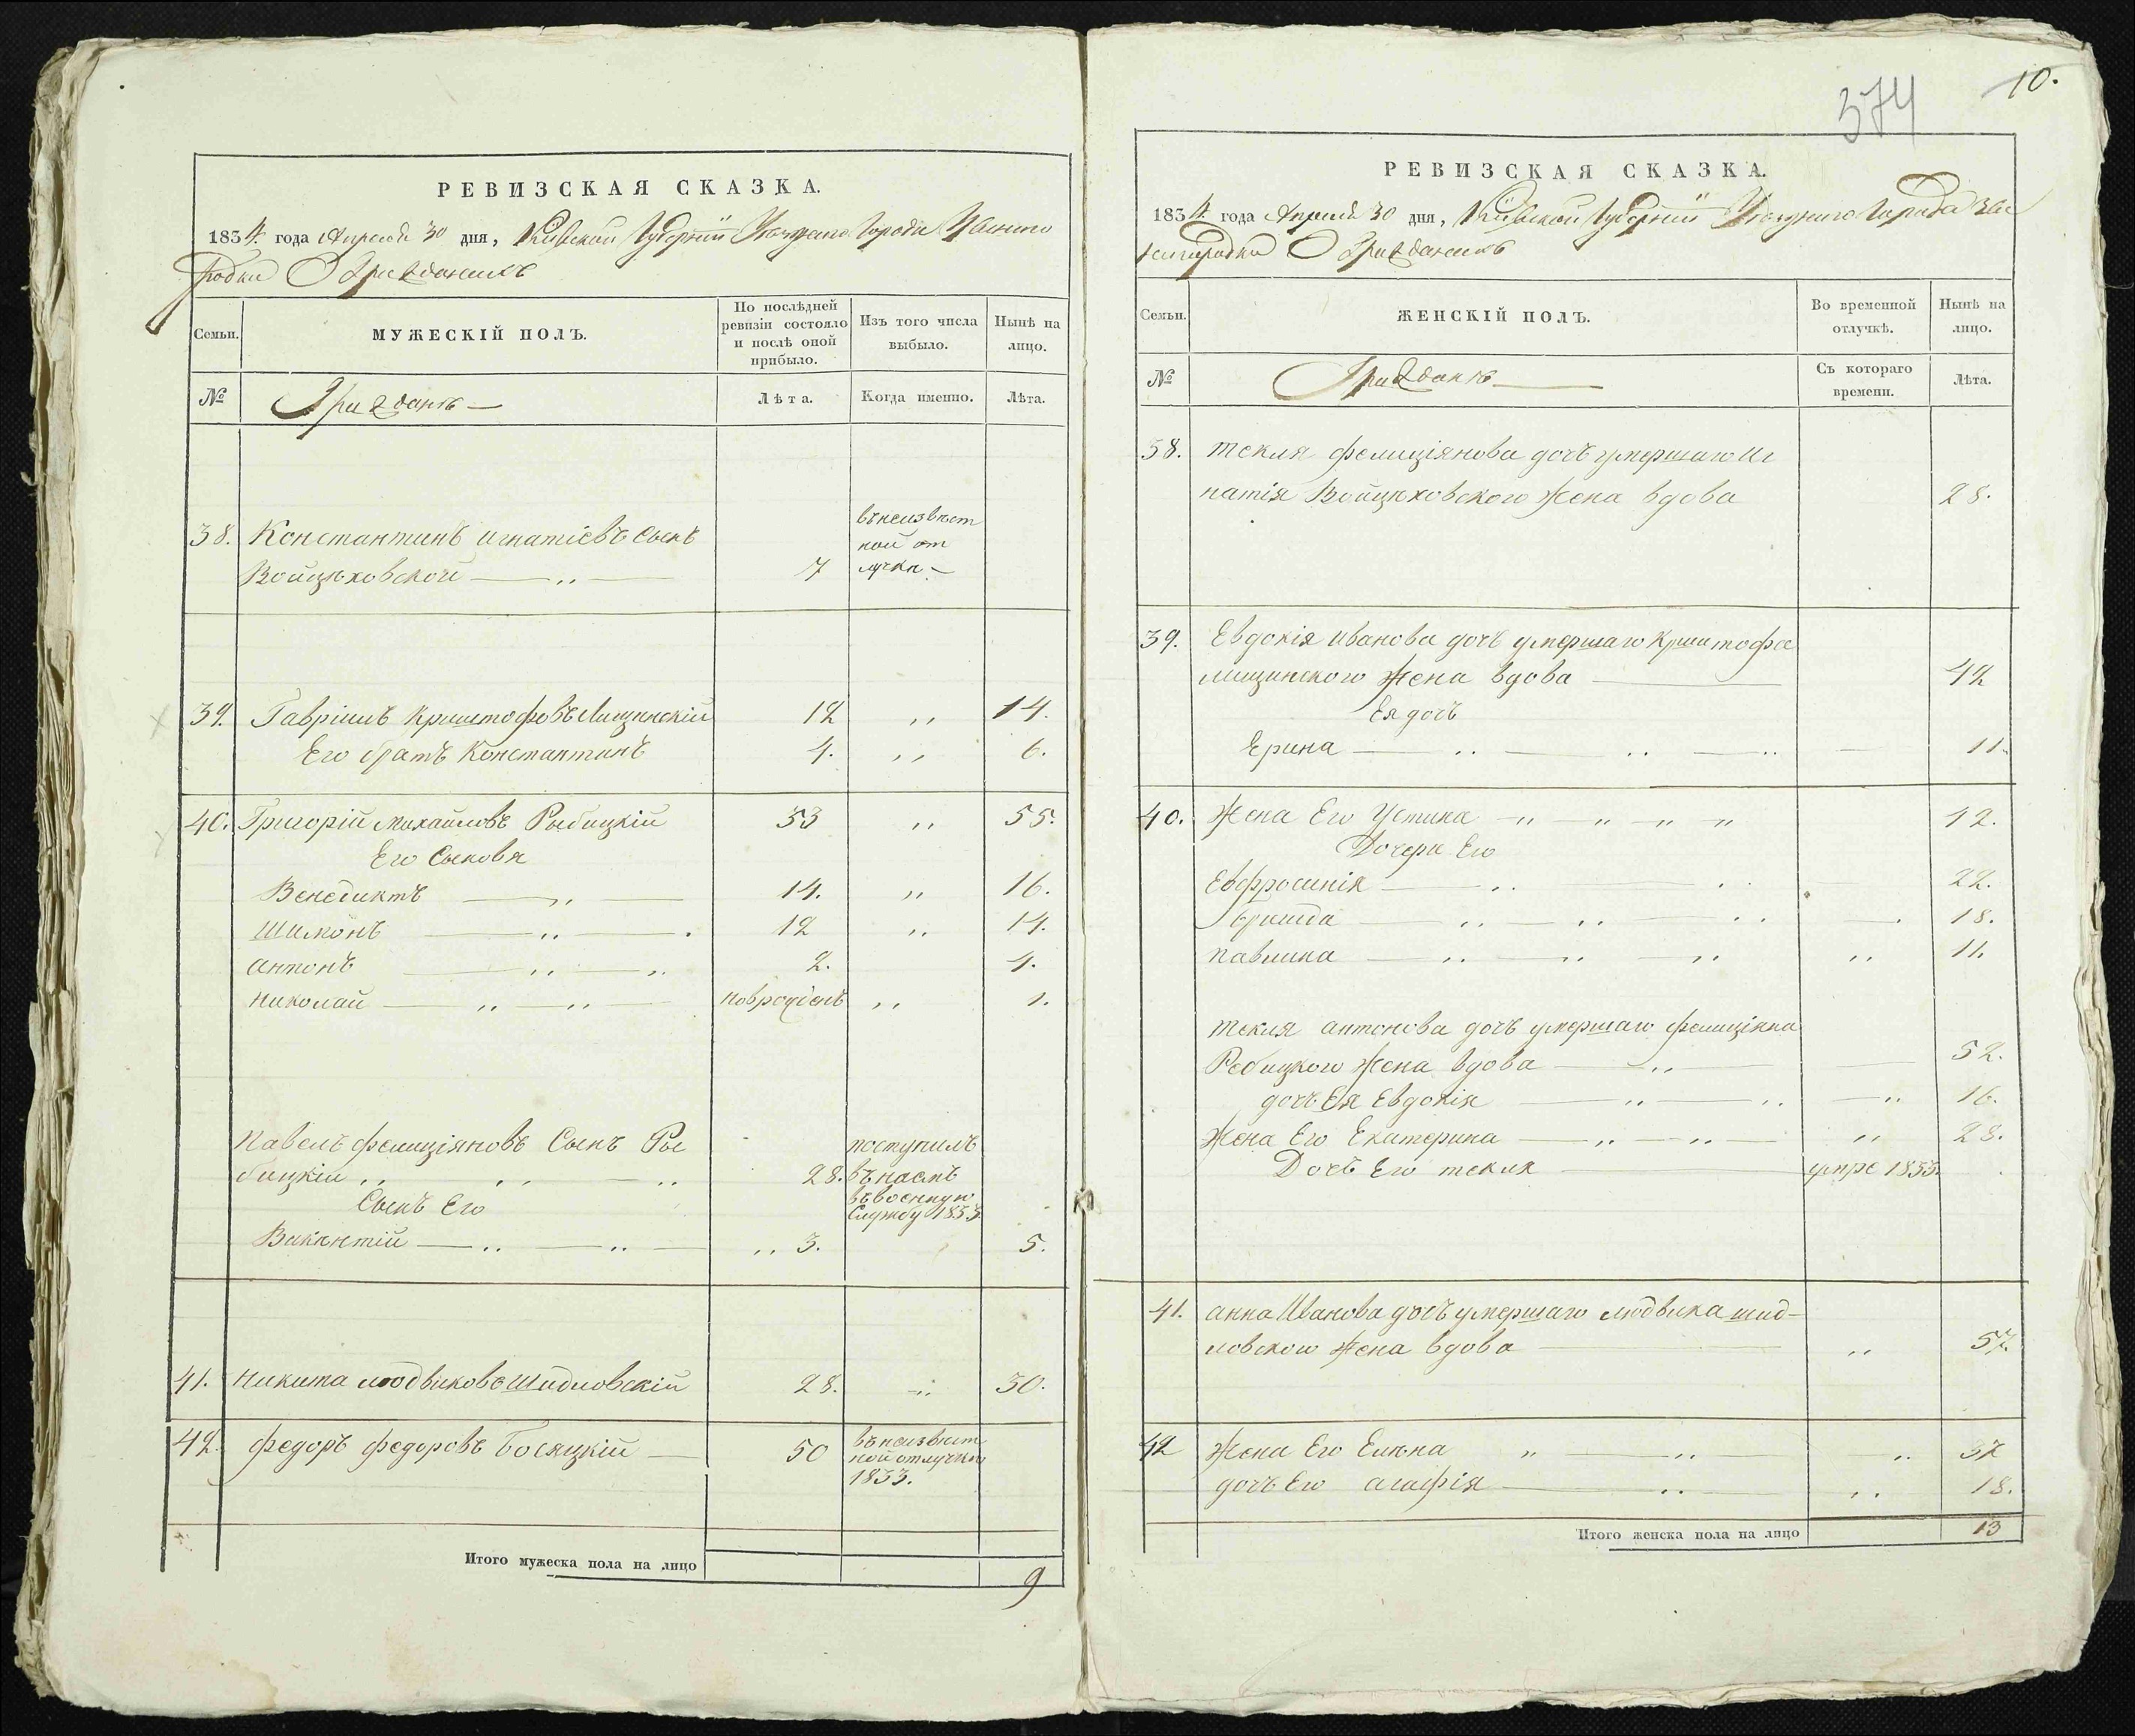 РЕВИЗСКАЯ СКАЗКА.
1834 года Апреля 30 дня, Кіевской Губерніи Уѣзднаго Города Звенино
родки О Гражданахъ
Семьи.
МУЖЕСКІЙ ПОЛЪ.
По послѣдней ревизіи состояло и послѣ оной прибыло.
Изъ того числа выбыло.
Нынѣ на лицо.
№
Гражданъ
Лѣта.
Когда именно.
Лѣта.
38. Константинъ Игнатіевъ Сынъ
Войцѣховской 7
въ неизвѣст
ной от
лучкѣ
39. Гавріилъ Криштофовъ Лищинскій 12 " 14.
Его братъ Константинъ 4. " 6.
40. Григорій Михайловъ Рыбицкій 53 " 55.
Его Сыновя
Венедиктъ " 14. " 16.
Шимонъ " 12 " 14.
Антонъ " " 2. 4.
Николай " " новрожденъ " 1.
Павелъ Фелиціяновъ Сынъ Ры
бицкій " " " 28.
поступилъ
въ наемъ
въ военную
Службу 1833
Сынъ Его
Викентій " " " 3. 5.
41. Никита Людвиковъ Шидловскій 28. " 30.
42. Федоръ Федоровъ Босяцкій 50
въ неизвѣст
ной отлучкѣ
1833.
Итого мужеска пола на лицо 9
374
10.
РЕВИЗСКАЯ СКАЗКА.
1834 года Апреля 30 дня, Кіевской Губерніи Уѣзднаго Города Зве
нигородки О Гражданахъ
Семьи.
ЖЕНСКІЙ ПОЛЪ.
Во временной отлучкѣ.
Нынѣ на лицо.
№
Гражданъ
Съ котораго времени.
Лѣта.
38. Текля Фелиціянова дочь умершаго Иг
натія Войцѣховского жена вдова 28.
39. Евдокія Иванова дочь умершаго Криштофа
Лищинского жена вдова 42
Ея дочь
Ерина " " " 11.
40. Жена Его Устина " " " " 42.
Дочери Его
Евфросинія " " 22.
" " " 18.
Павлина " " " " 11.
Текля Антонова дочь умершаго Фелиціяна
Ребицкого жена вдова " 52.
дочь Ея Евдокія " " " 16.
Жена Его Екатерина " " " 28.
Дочь Его Текля умре 1833.
41. Анна Иванова дочь умершаго Людвика Шид-
ловского жена вдова " 57.
42 Жена Его Елена " " " 37
дочь Его Агафія " " 18.
Итого женска пола на лицо 13